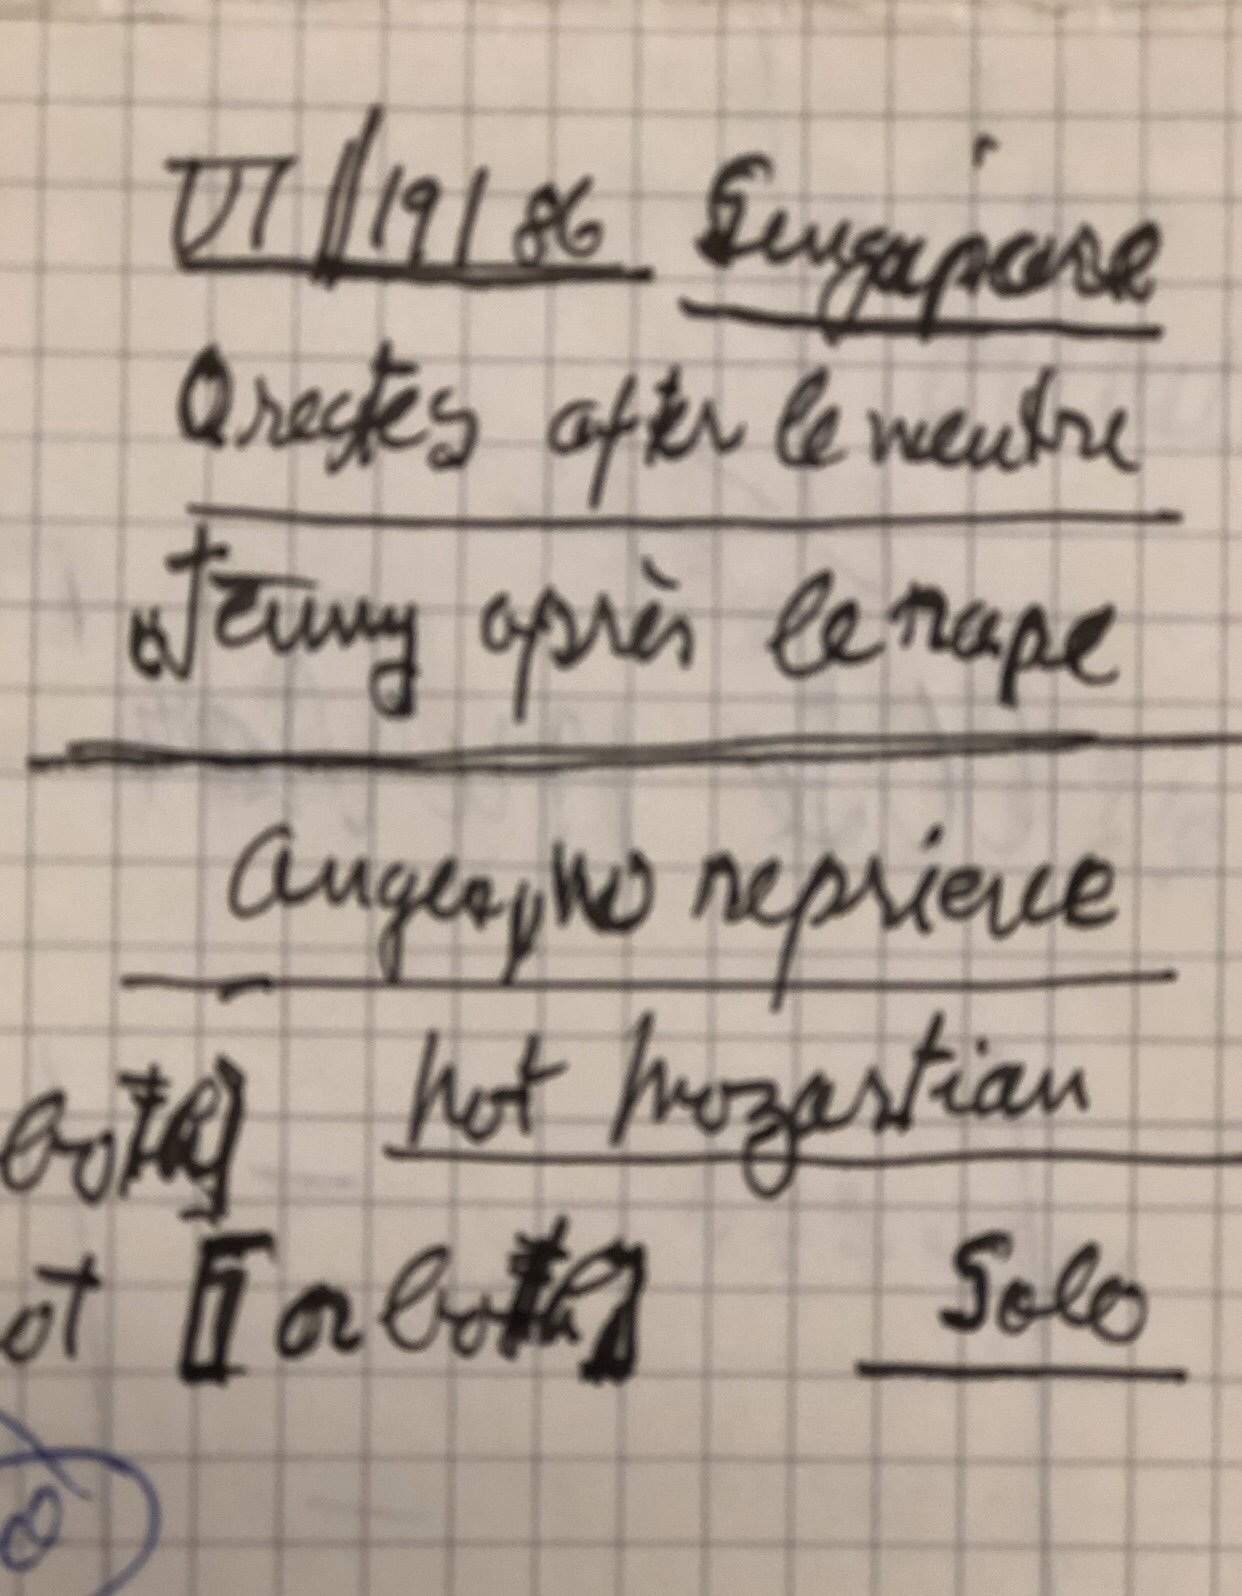 VI//19/86 Singapore
Orestes after le meutre
Jenny après le rape
Anger, no reprieve
both] not mozartian
ot [or both] Solo
8